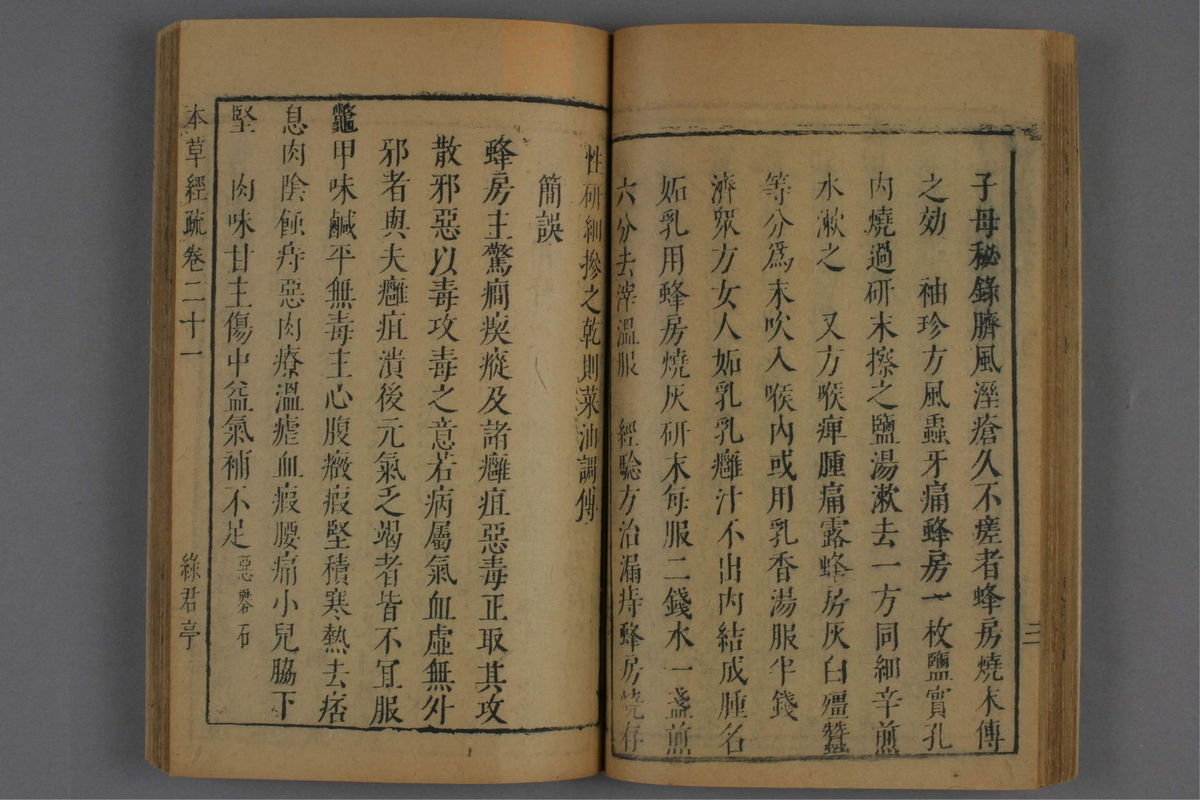 子母秘錄臍風溼瘡久不瘥者蜂房燒末傅
之効　袖珍方風蟲牙痛蜂房一枚鹽實孔
內燒過研末擦之鹽湯漱去一方同細辛煎
水漱之　又方喉痺腫痛露蜂房灰白殭蠶
等分爲末吹入喉內或用乳香湯服半錢
濟眾方女人妬乳乳癰汁不出內結成腫名
妬乳用蜂房燒灰研末每服二錢水一盞煎
六分去滓溫服　經驗方治漏痔蜂房燒存
性研細摻之乾則菜油調傅
簡誤
蜂房主驚癇瘈瘲及諸癰疽惡毒正取其攻
散邪惡以毒攻毒之意若病屬氣血虛無外
邪者與夫癰疽潰後元氣乏竭者皆不宜服
鼈甲味鹹平無毒主心腹癥瘕堅積寒熱去痞
息肉陰蝕痔惡肉療溫瘧血瘕腰痛小兒脇下
堅　肉味甘主傷中益氣補不足惡礬石
本草經疏卷二十一　綠君亭
三